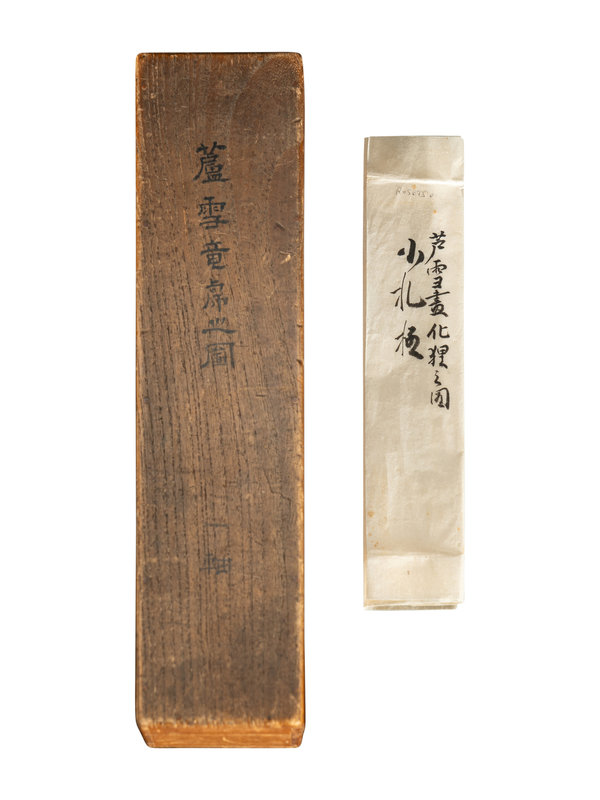 蘆雪竜虎之圖
一軸
芦雪畫化狸之図
小札極